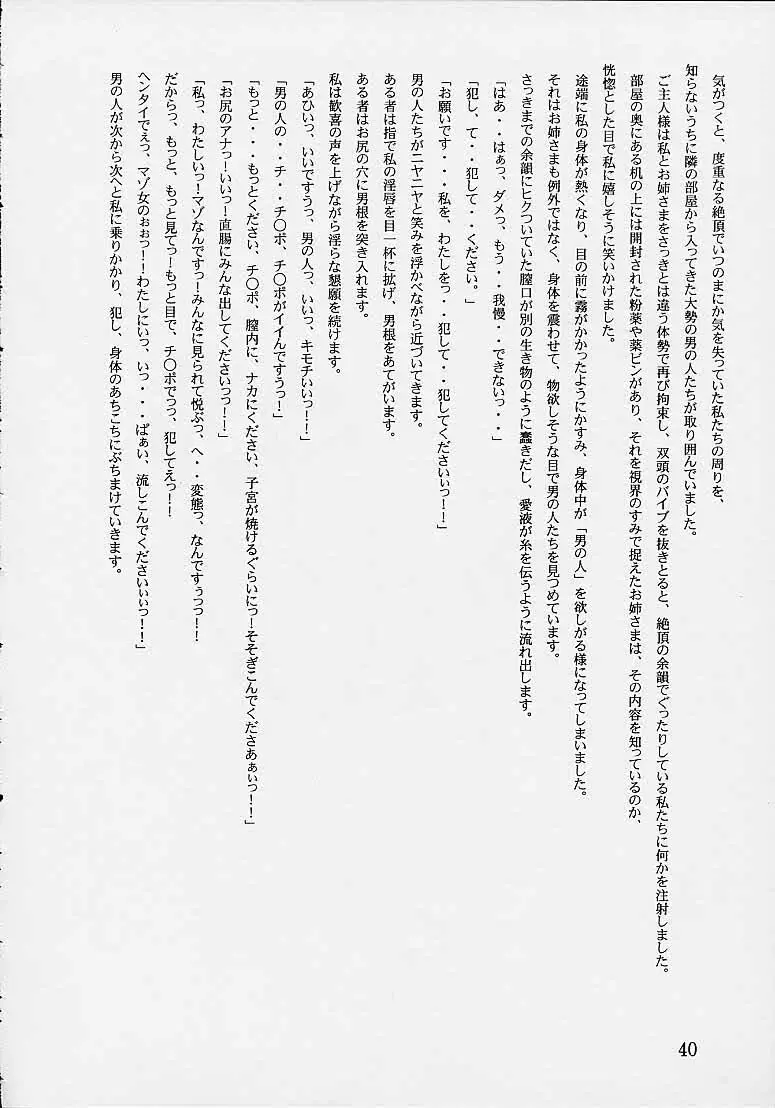 気がつくと、度重なる絶頂でいつのまにか気を失っていた私たちの周りを、
知らないうちに隣の部屋から入ってきた大勢の男の人たちが取り囲んでいました。
ご主人様は私とお姉さまをさっきとは違う体勢で再び拘束し、双頭のバイブを抜きとると、絶頂の余韻でぐったりしている私たちに何かを注射しました。
部屋の奥にある机の上には開封された粉薬や薬ビンがあり、それを視界のすみで捉えたお姉さまは、その内容を知っているのか、
恍惚とした目で私に嬉しそうに笑いかけました。
途端に私の身体が熱くなり、目の前に霧がかかったようにかすみ、身体中が「男の人」を欲しがる様になってしまいました。
それはお姉さまも例外ではなく、身体を震わせて、物欲しそうな目で男の人たちを見つめています。
さっきまでの余韻にヒクついていた膣口が別の生き物のように蠢きだし、愛液が糸を伝うように流れ出します。
「はあ・・はぁっ、ダメっ、もう・・我慢・・できないっ・・」
「犯し、て・・犯して・・ください。」
「お願いです・・・私を、わたしをっ・・犯して・・犯してくださいぃっ！！」
男の人たちがニヤニヤと笑みを浮かべながら近づいてきます。
ある者は指で私の淫唇を目一杯に拡げ、男根をあてがいます。
ある者はお尻の穴に男根を突き入れます。
私は歓喜の声を上げながら淫らな懇願を続けます。
「あひいっ、いいですうっ、男の人っ、いいっ、キモチいいっ！！」
「男の人の・・チ・・チ〇ポ、チ〇ポがイイんですうっ！」
「もっと・・・もっとください、チ〇ポ、膣内に、ナカにください、子宮が焼けるぐらいにっ！そそぎこんでくださあぁぃっ！！」
「お尻のアナっーいいっ！直腸にみんな出してくださいっっ！！」
「私っ、わたしいっ！マゾなんですっ！みんなに見られて悦ぶっ、ヘ・・変態っ、なんですぅっっ！！
だからっ、もっと、もっと見てっ！もっと目で、チ〇ポでっっ、犯してえっ！！
ヘンタイでぇっ、マゾ女のぉぉっ！！わたしにいっ、いっ・・・ばぁい、流しこんでくださいぃぃっ！！」
男の人が次から次へと私に乗りかかり、犯し、身体のあちこちにぶちまけていきます。
40